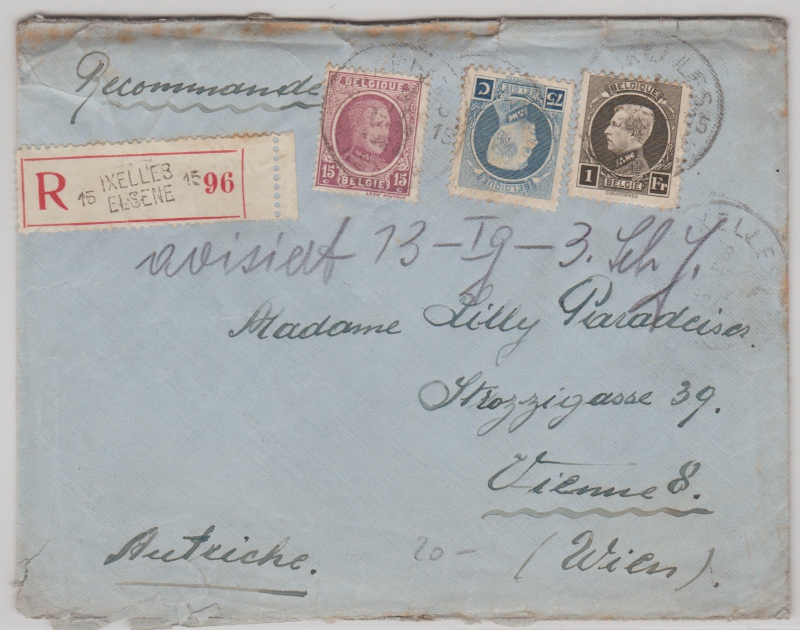 Recommandé
BELGIQUE
15 c 15
BELGIË
75 C
BELGIE
BELGIQUE
BELGIQUE
1 Fr
BELGIË
R 15 IXELLES 15 96
ELSENE
avisiert 13-IX-3.
Madame Lilly Paradeiser.
Strozzigasse 39.
Vienne 8.
(Wien).
Autriche.
20-